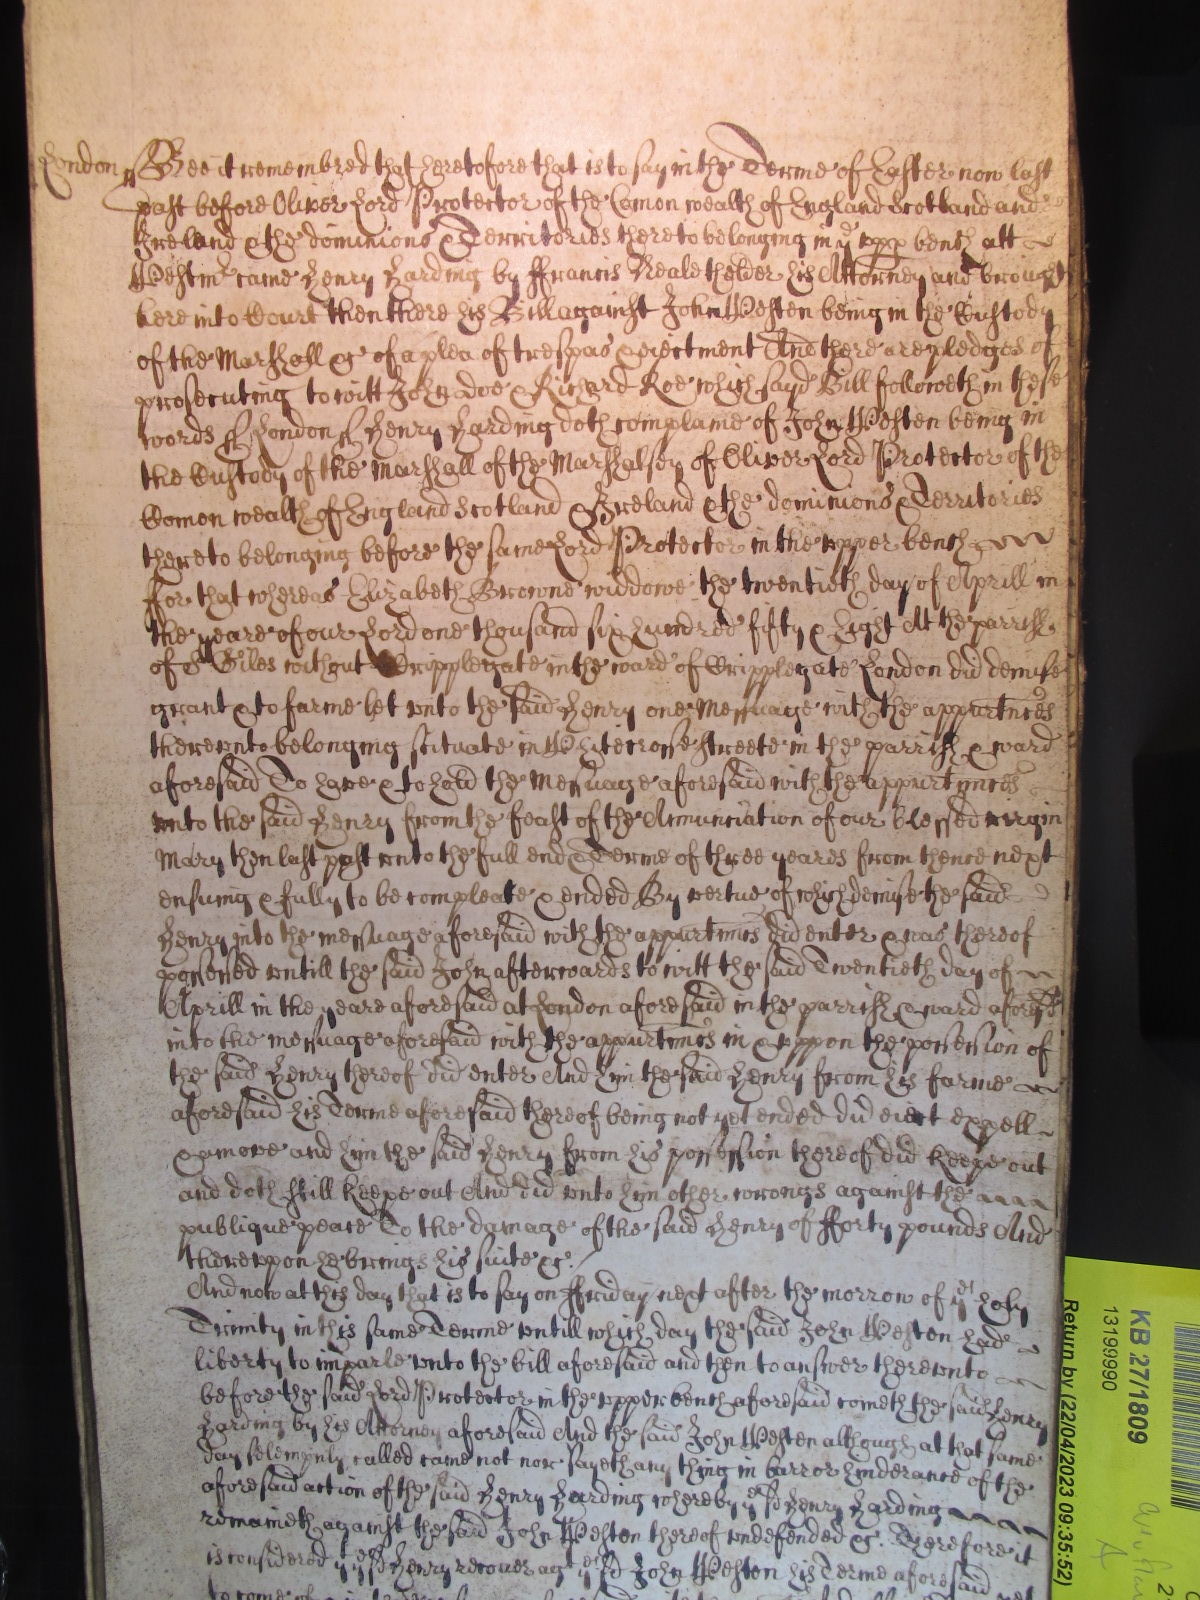 London ss Bee it remembred that heretofore that is to say in the Terme of Easter now last
past before Oliver Lord Protector of the Comon wealth of England Scotland and
Ireland & the dominions & Territories thereto belonging in ye upp bench att
Westmr came Henry Harding by Ffrancis Neale thelder his Attorney and brought
here into Court then there his Bill against John Westen being in the Custody
of the Marshall &c of a plea of trespas & eiectment And there are pledges of
prosecuting to witt John Doe & Richard Roe which sayd Bill followeth in these
words ss London ss Henry Harding doth complaine of John Westen being in
the Custody of the Marshall of the Marshalsey of Oliver Lord Protector of the
Comon wealth of England Scotland & Ireland & the dominions & Territories
thereto belonging before the same Lord Protector in the upper bench
ffor that whereas Elizabeth Browne widdowe the twentieth day of Aprill in
the yeare of our Lord one thousand six hundred fifty & Eight At the parrish
of St Giles without Cripplegate in the ward of Cripplegate London did demise
grant & to farme let unto the said Henry one Messuage with the appurtnces
thereunto belonging scituate in Whitecrosse streete in the parrish & ward
aforesaid To have & to hold the Messuage aforesaid with the appurtnces
unto the said Henry from the feast of the Annunciation of our blessed virgin
Mary then last past unto the full end & Terme of three yeares from thence next
ensuing & fully to be compleate & ended By vertue of which demise the said
Henry into the messuage aforesaid with the appurtnnces did enter & was thereof
possessed untill the said John afterwards to witt the said Twentieth day of
Aprill in the yeare aforesaid at London aforesaid in the parrish & ward aforesd
into the messuage aforesaid with the appurtnnces in & uppon the possession of
the said Henry thereof did enter And him the said Henry from his farme
aforesaid his Terme aforesaid thereof being not yet ended did eiect expell
& amove and him the said Henry from his possession thereof did keepe out
and doth still keepe out And did unto him other wrongs against the
publique peace To the damage of the said Henry of fforty pounds And
thereuppon he brings his suite &c
And now at this day that is to say on Ffriday next after the morrow of ye holy
Trinity in this same Terme untill which day the said John Westen had
liberty to imparle unto the bill aforesaid and then to answer thereunto
before the said Lord Protector in the upper bench aforesaid cometh the said Henry
Harding by his Attorney aforesaid And the said John Westen although at that same
day solempnly called came not nor sayeth any thing in barr or hinderance of the
aforesaid action of the said Henry Harding whereby ye sd Henry Harding
remaineth against the said John Westen thereof undefended &c Therefore it
is considered yt ye sd Henry recover agt ye sd John Westen his Terme aforesaid yet
to come of
KB 27/1809
13199990
Return by (22/04/2023 09:35:52)